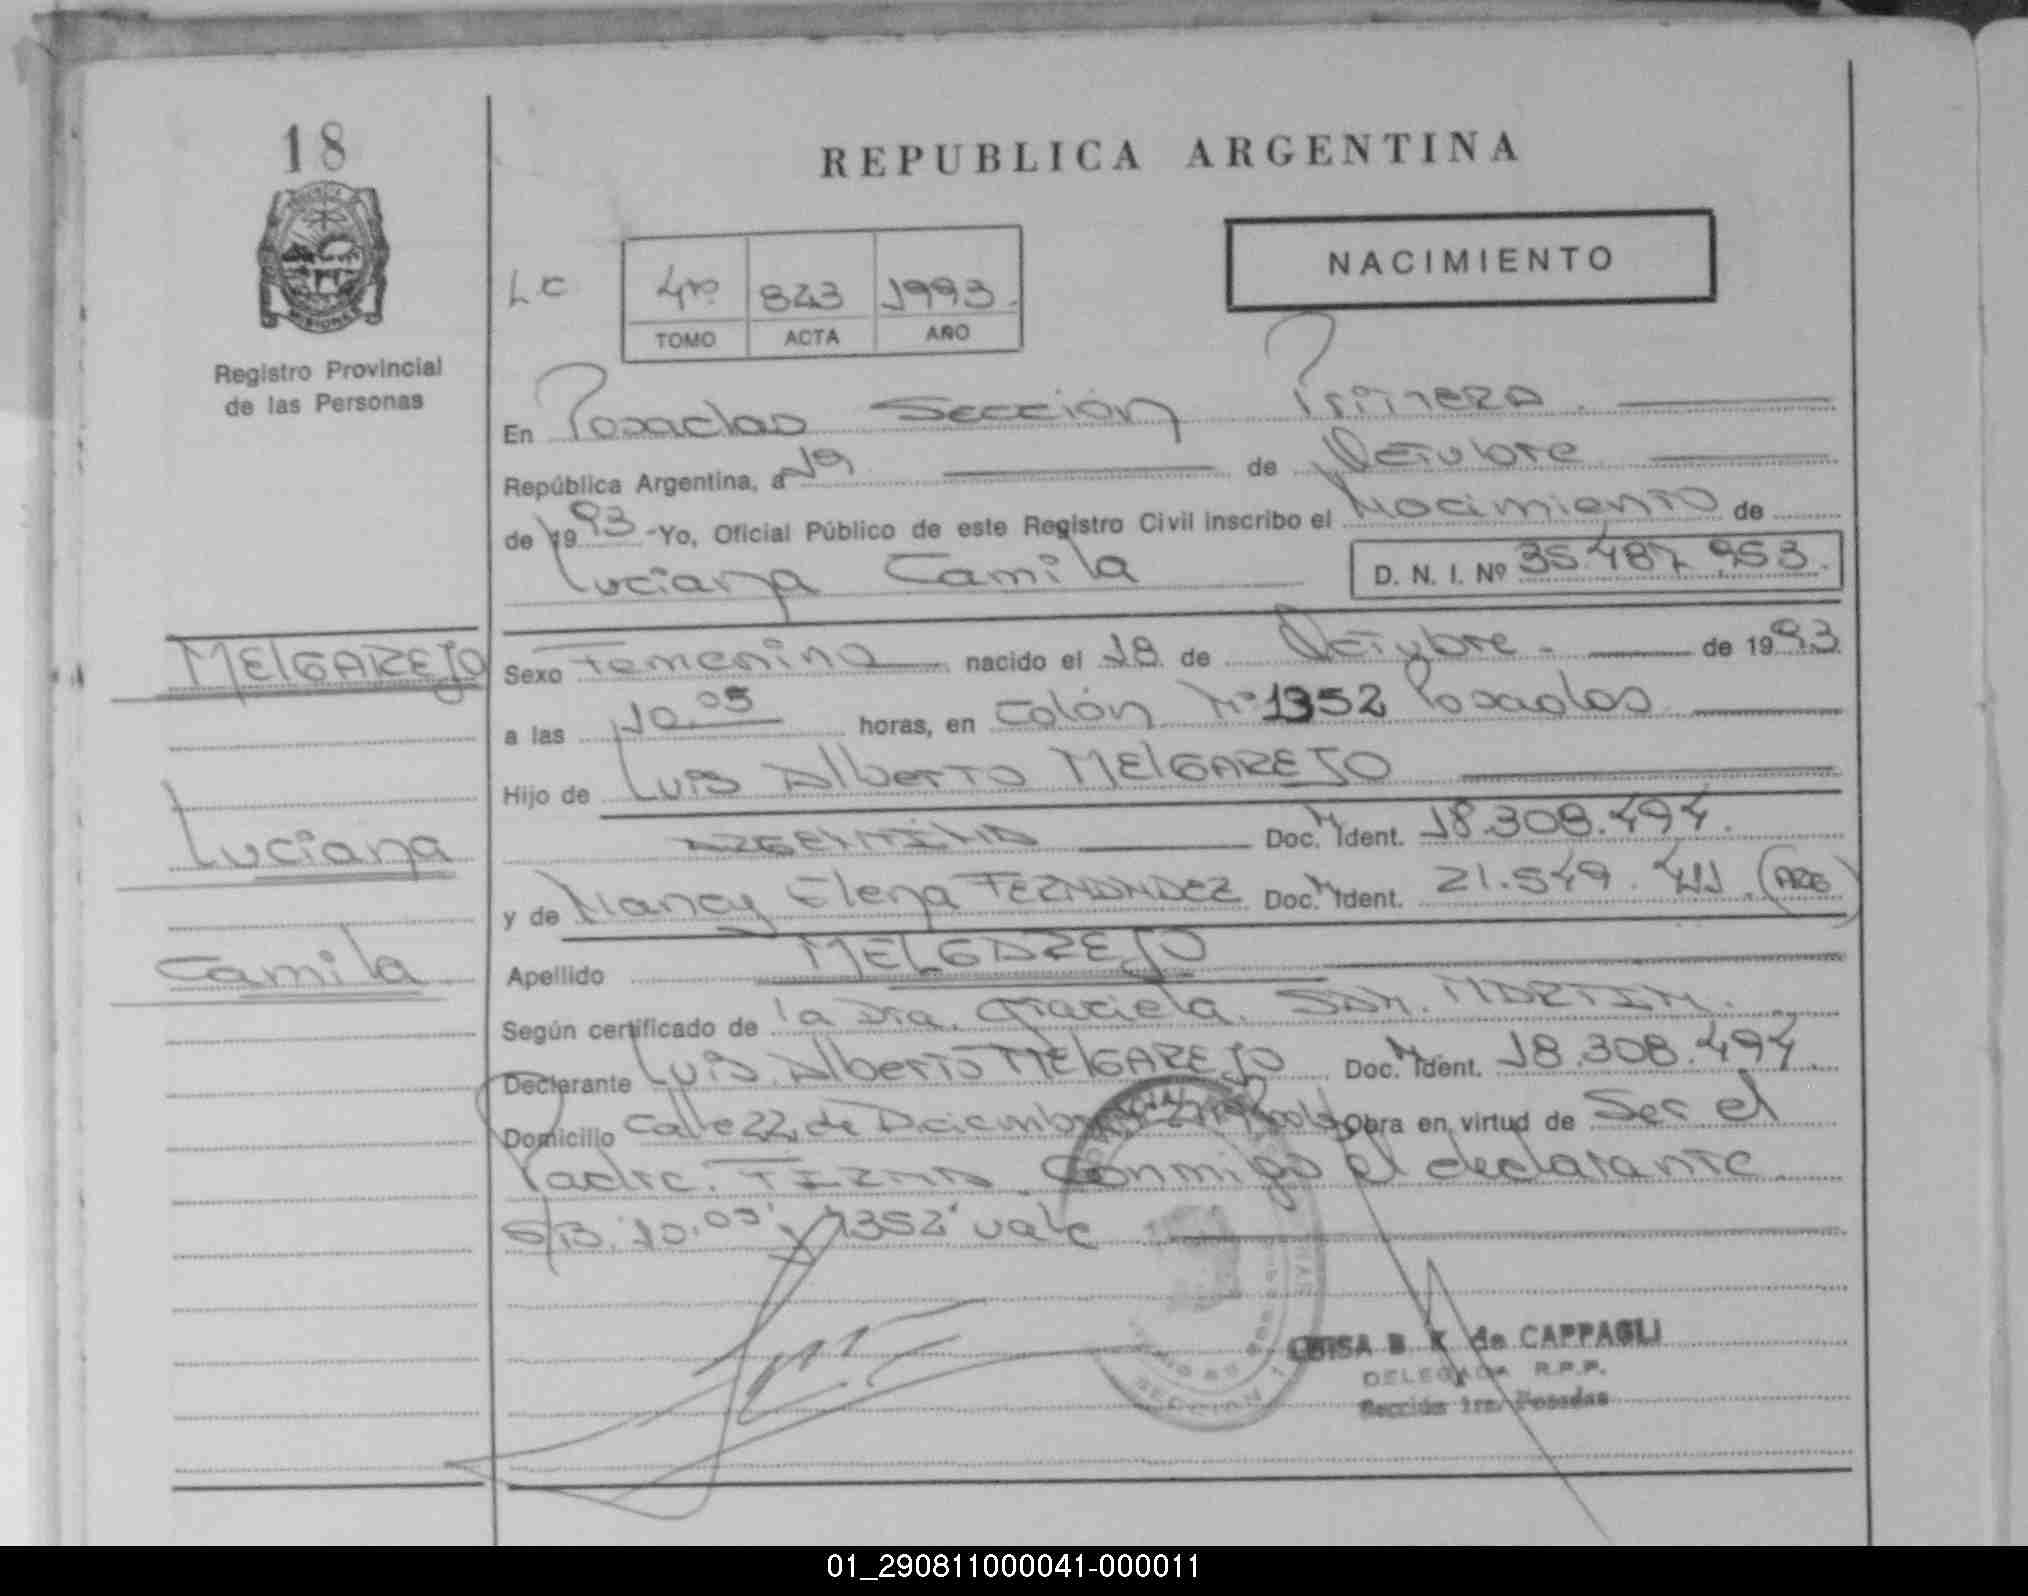 18
REPUBLICA ARGENTINA
NACIMIENTO
4to 823 1993.
TOMO ACTA AÑO
Registro Provincial
de las Personas
En Posadas Sección Primera.
República Argentina, a 19 de Octubre
de 1993 -Yo, Oficial Público de este Registro Civil inscribo el Nacimiento de
Luciana Camila D. N. I. Nº 35.487.953.
MELGAREJO
Sexo Femenino nacido el 18 de Octubre. de 1993
a las 10.05 horas, en Colón Nº 1352 Posadas
Hijo de Luis Alberto MELGAREJO
Luciana
ARGENTINO Doc. M Ident. 18.308.494.
y de Nancy Elena FERNANDEZ Doc. M Ident. 21.549.411. (ARG)
Camila
Apellido MELGAREJO
Según certificado de la Dra. Graciela SAN MARTIN.
Declarante Luis Alberto MELGAREJO Doc. M Ident. 18.308.494.
Domicilio Calle 22 de Diciembre Obra en virtud de Ser el
Padre. FIRMA Conmigo el declarante
S/B. "10.05" y "1352" vale
SECCION 1
LUISA B. K. de CAPPAGLI
DELEGADA R.P.P.
Sección 1ra. Posadas
01_290811000041-000011